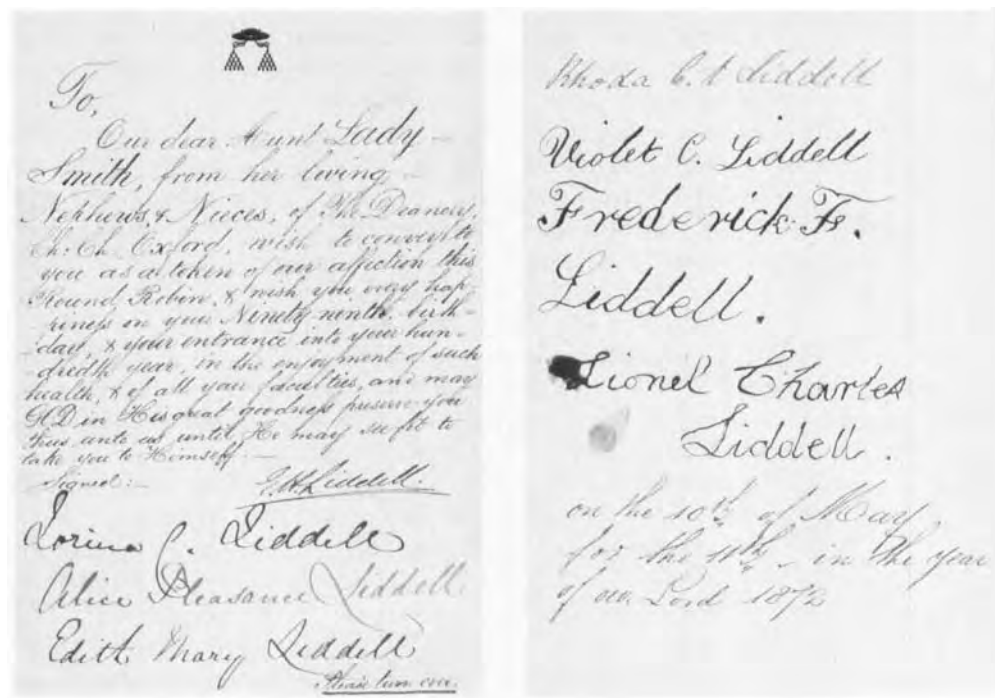 To,
Our dear Aunt Lady
Smith, from her loving
Nephews, & Nieces, of The Deanery,
Ch: Ch. Oxford, wish to convey to
you as a token of our affection this
Round Robin, & wish you every hap-
-piness on your Ninety-ninth birth-
-day, & your entrance into your hun-
-dredth year, in the enjoyment of such
health, & of all your faculties, and may
GOD in His great goodness preserve you
thus unto us until He may see fit to
take you to Himself.—
Signed:—
Liddell.
Lorina C. Liddell
Alice Pleasance Liddell
Edith Mary Liddell
Please turn over.
Rhoda C. A. Liddell
Violet C. Liddell
Frederick F.
Liddell.
Lionel Charles
Liddell.
on the 10th of May,
for the 11th – in the year
of our Lord 1872